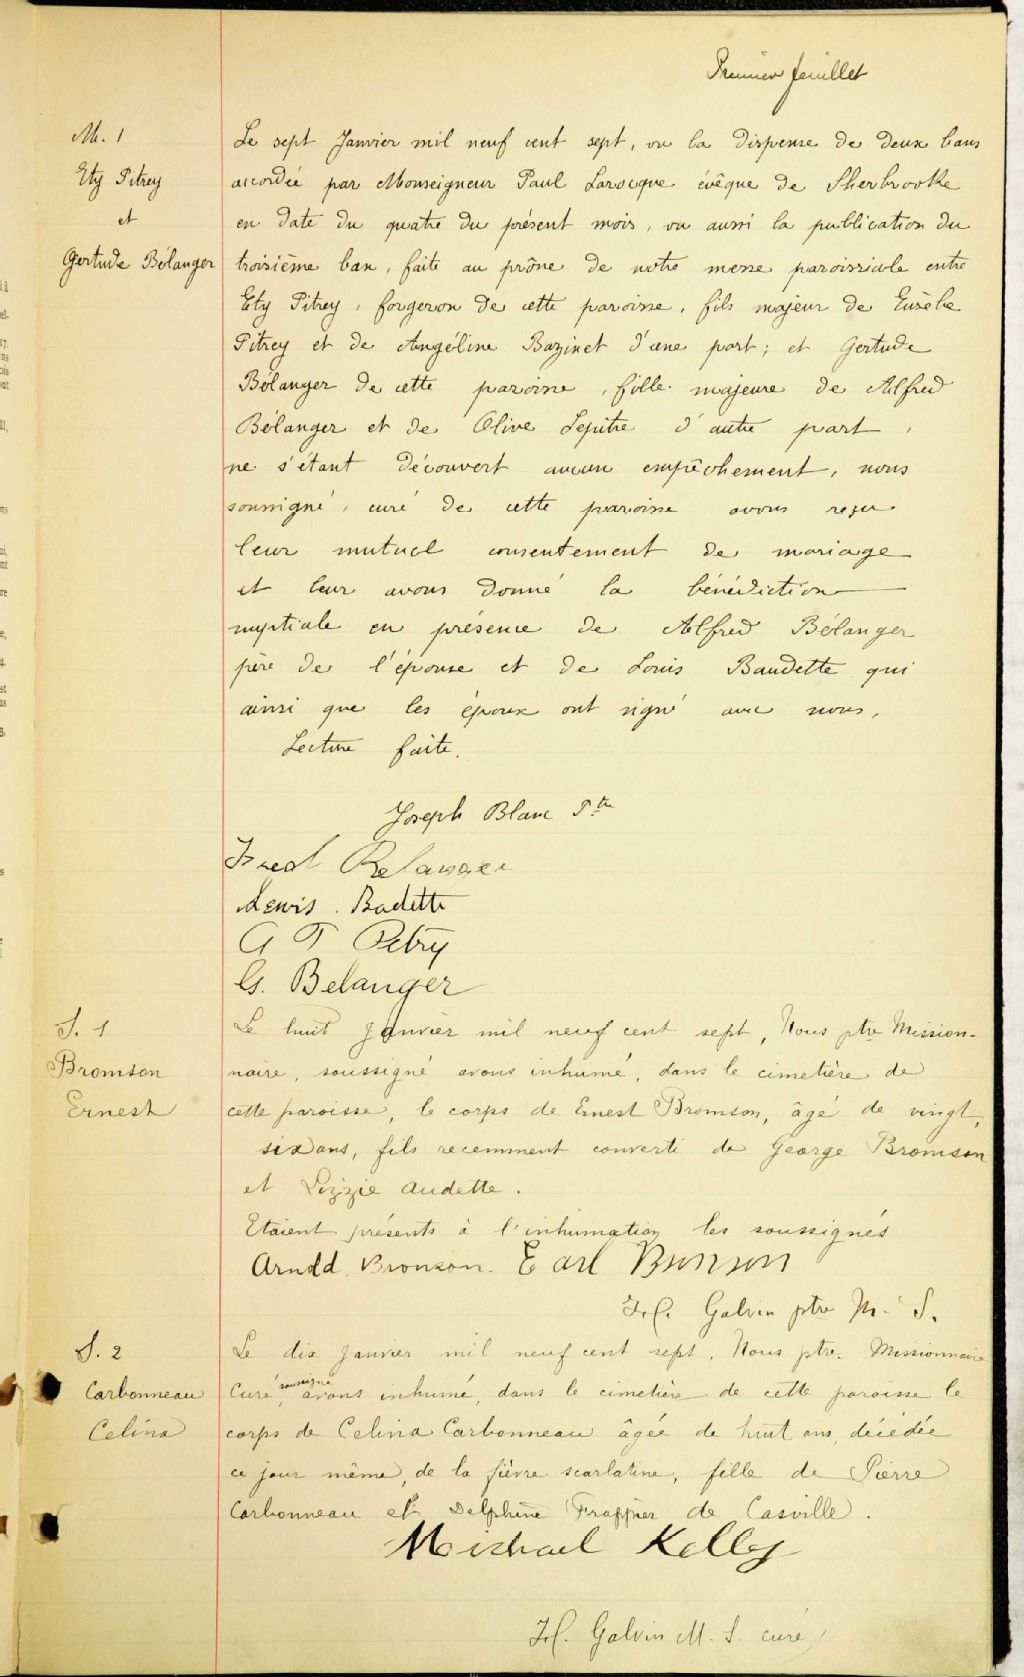 Premier feuillet
M. 1
Ety Pitrey
et
Gertude Bélanger
Le sept Janvier mil neuf cent sept, vu la dispense de deux bans
accordée par Monseigneur Paul Larocque évêque de Sherbrooke
en date du quatre du présent mois, vu aussi la publication du
troisième ban, faite au prône de notre messe paroissiale entre
Ety Pitrey, forgeron de cette paroisse, fils majeur de Eusèbe
Pitrey et de Angéline Bazinet d'une part; et Gertude
Bélanger de cette paroisse, fille majeure de Alfred
Bélanger et de Olive Lepître d'autre part,
ne s'étant découvert aucun empêchement, nous
soussigné, curé de cette paroisse avons reçu
leur mutuel consentement de mariage
et leur avons donné la bénédiction
nuptiale en présence de Alfred Bélanger
père de l'épouse et de Louis Baudette qui
ainsi que les époux ont signé avec nous.
Lecture faite.
Joseph Blanc Ptre
Fred Belanger
Lewis Badette
G T Petry
G. Belanger
S. 1
Bromson
Ernest
Le huit janvier mil neuf cent sept, Nous ptre Mission-
naire, soussigné avons inhumé, dans le cimetière de
cette paroisse, le corps de Ernest Bromson, âgé de vingt,
six ans, fils recemment converti de George Bromson
et Lizzie Audette.
Etaient présents à l'inhumation les soussignés
Arnold Bronson. Earl Bronson
H. Galvin ptre M. S.
S. 2
Carbonneau
Celina
Le dix janvier mil neuf cent sept, Nous ptre. Missionnaire
Curé, soussigné avons inhumé, dans le cimetière de cette paroisse le
corps de Celina Carbonneau âgée de huit ans, décédée
ce jour même, de la fièvre scarlatine, fille de Pierre
Carbonneau et Delphine Frappier de Casville.
Michael Kelley
H. Galvin M. S. curé